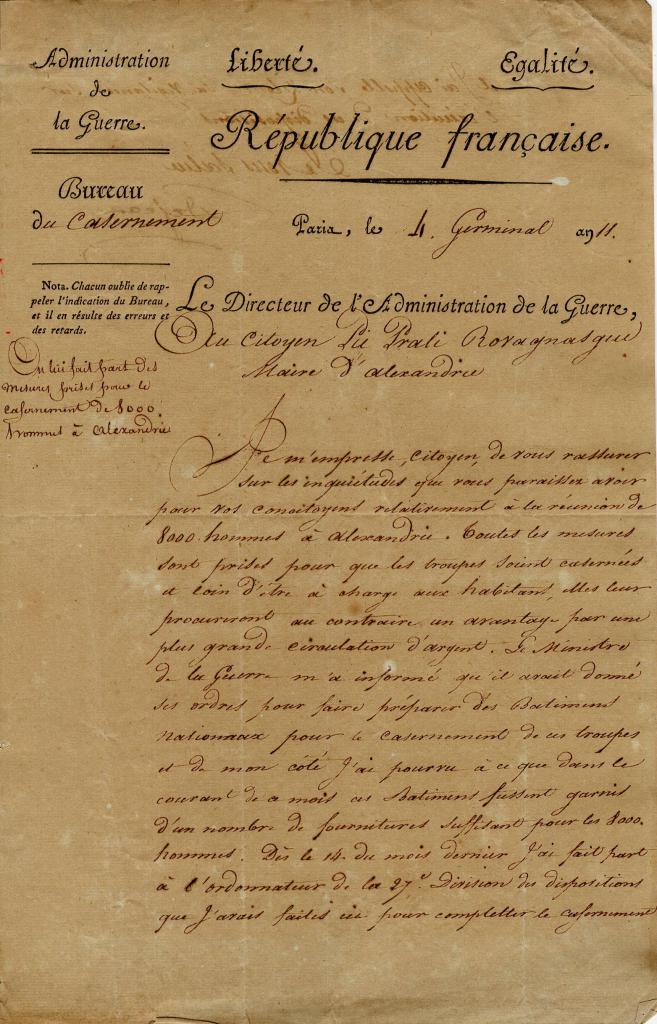 Administration
de
la Guerre.
Liberté.
Egalité.
République française.
Bureau
du Casernement
Paris, le 4. Germinal an 11.
Nota. Chacun oublie de rap-
peler l'indication du Bureau,
et il en résulte des erreurs et
des retards.
Le Directeur de l'Administration de la Guerre,
Au Citoyen Pié Prati Rovagnasque
Maire d'alexandrie
On lui fait part des
mesures prises pour le
casernement de 8000.
hommes à alexandrie
Je m'empresse, Citoyen, de vous rassurer
sur les inquiétudes que vous paraissez avoir
pour vos concitoyens relativement à la réunion de
8000. hommes à alexandrie. Toutes les mesures
sont prises pour que les troupes soient casernées
et loin d'être à charge aux habitans, elles leur
procureront au contraire un avantage par une
plus grande circulation d'argent. Le Ministre
de la Guerre m'a informé qu'il avait donné
ses ordres pour faire préparer des Batimens
nationaux pour le casernement de ces troupes
et de mon côté J'ai pourvu à ce que dans le
courant de ce mois ces Batimens fussent garnis
d'un nombre de fournitures suffisant pour les 8000.
hommes. Dès le 14. du mois dernier J'ai fait part
à l'ordonnateur de la 27e. Division des dispositions
que J'avais faites ici pour completter le casernement